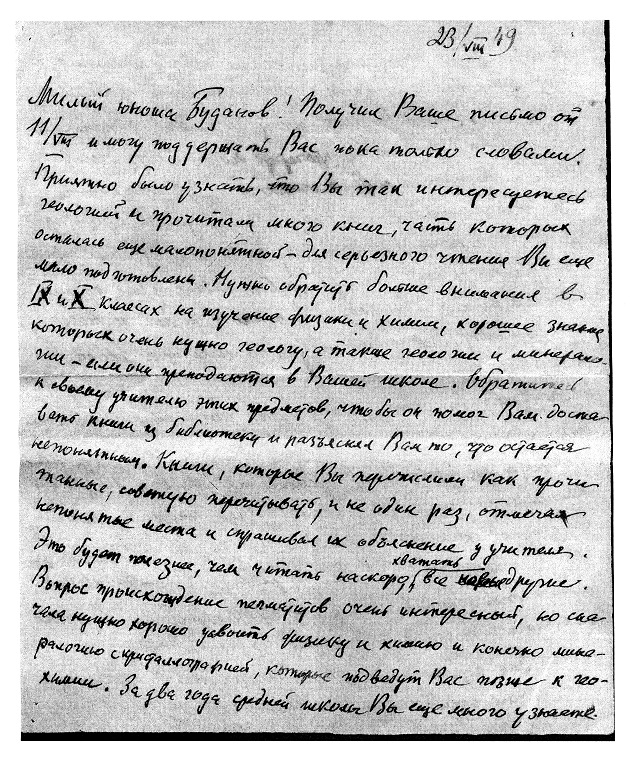 23/VIII 49
Милый юноша Буданов! Получил Ваше письмо от
11/VIII и могу поддержать Вас пока только словами.
Приятно было узнать, что Вы так интересуетесь
геологией и прочитали много книг, часть которых
осталась еще малопонятной – для серьезного чтения Вы еще
мало подготовлены. Нужно обратить больше внимания в
IX и X классах на изучение физики и химии, хорошее знание
которых очень нужно геологу, а также геологии и минерало-
гии – если они преподаются в Вашей школе. Обратитесь
к своему учителю этих предметов, чтобы он помог Вам доста-
вать книги из библиотеки и разъяснял Вам то, что остается
непонятным. Книги, которые Вы перечислили как прочи-
танные, советую перечитывать, и не один раз, отмечая
непонятые места и спрашивая их объяснение у учителя.
Это будет полезнее, чем читать наскоро, хватать все другие.
Вопрос происхождение пегматитов очень интересный, но сна-
чала нужно хорошо усвоить физику и химию и конечно мине-
ралогию с кристаллографией, которые подведут Вас позже к гео-
химии. За два года средней школы Вы еще много узнаете.